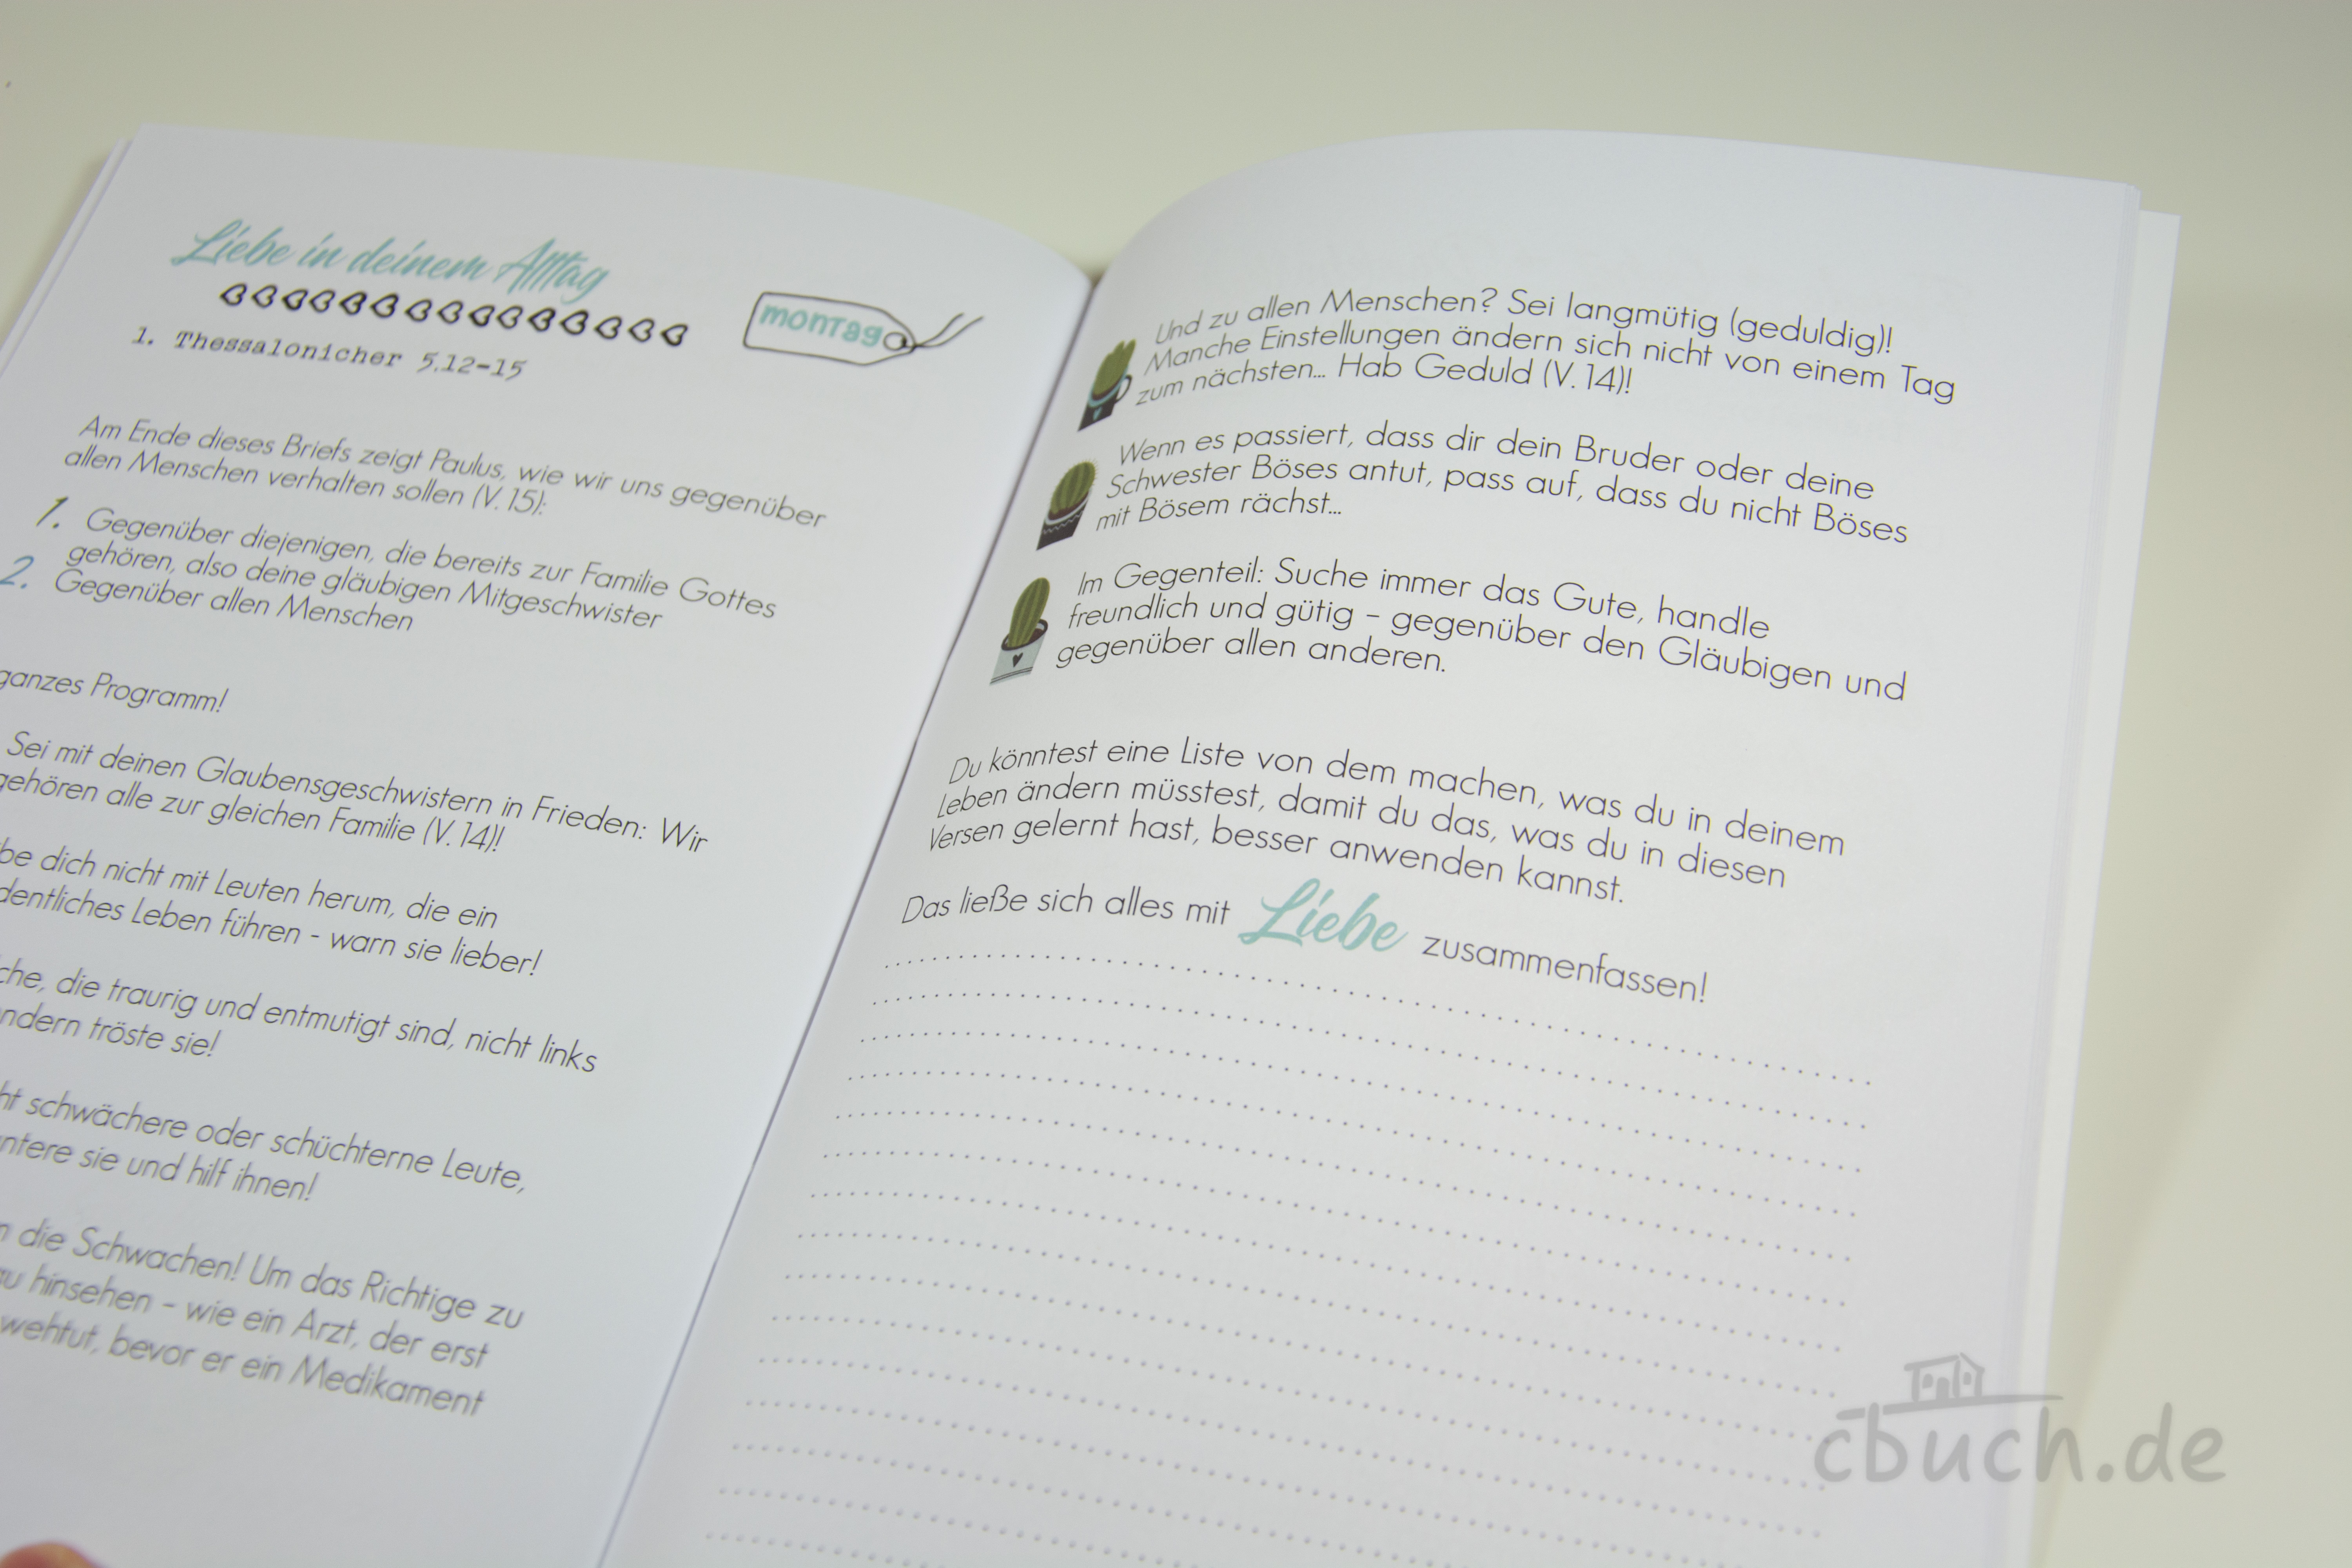 Liebe in deinem Alltag
montag
1. Thessalonicher 5,12-15
Am Ende dieses Briefs zeigt Paulus, wie wir uns gegenüber
allen Menschen verhalten sollen (V. 15):
1. Gegenüber diejenigen, die bereits zur Familie Gottes
gehören, also deine gläubigen Mitgeschwister
2. Gegenüber allen Menschen
ganzes Programm!
Sei mit deinen Glaubensgeschwistern in Frieden: Wir
gehören alle zur gleichen Familie (V. 14)!
dich nicht mit Leuten herum, die ein
Leben führen - warn sie lieber!
die traurig und entmutigt sind, nicht links
tröste sie!
schwächere oder schüchterne Leute,
sie und hilf ihnen!
die Schwachen! Um das Richtige zu
hinsehen – wie ein Arzt, der erst
wehtut, bevor er ein Medikament
Und zu allen Menschen? Sei langmütig (geduldig)!
Manche Einstellungen ändern sich nicht von einem Tag
zum nächsten... Hab Geduld (V. 14)!
Wenn es passiert, dass dir dein Bruder oder deine
Schwester Böses antut, pass auf, dass du nicht Böses
mit Bösem rächst...
Im Gegenteil: Suche immer das Gute, handle
freundlich und gütig – gegenüber den Gläubigen und
gegenüber allen anderen.
Du könntest eine Liste von dem machen, was du in deinem
Leben ändern müsstest, damit du das, was du in diesen
Versen gelernt hast, besser anwenden kannst.
Das ließe sich alles mit Liebe zusammenfassen!
cbuch.de